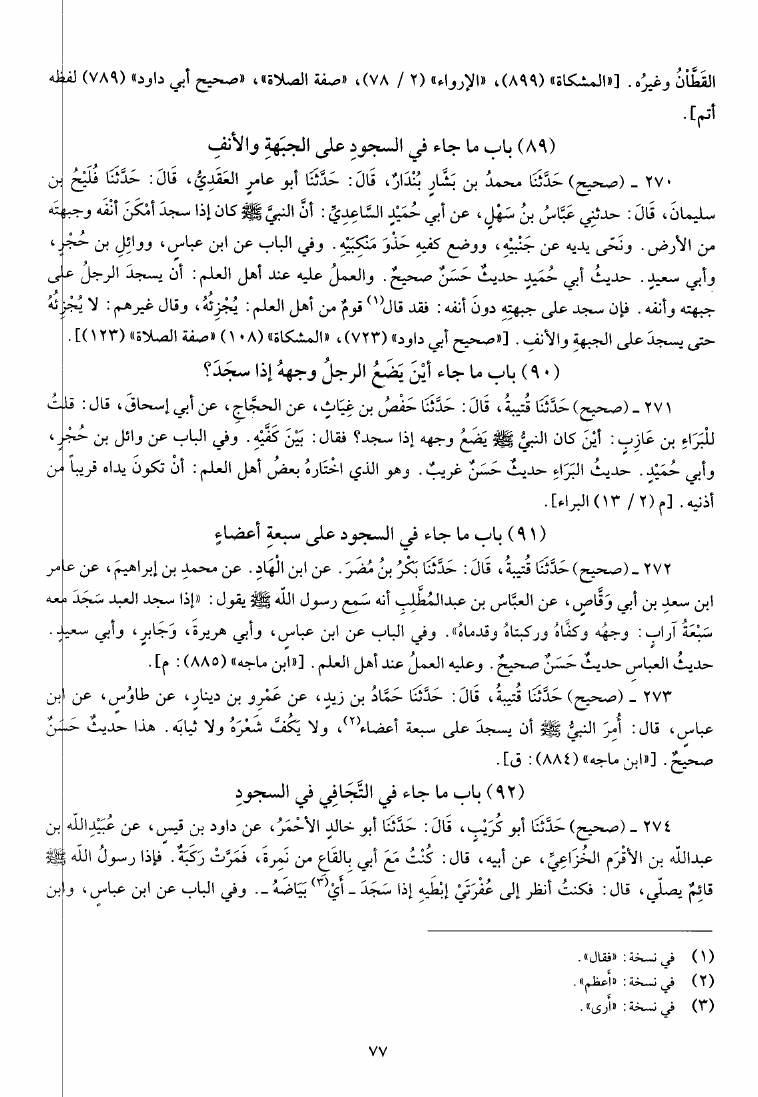 القَطَّانُ وغيرُه. [«المشكاة» (٨٩٩)، «الإرواء» (٢ / ٧٨)، «صفة الصلاة»، «صحيح أبي داود» (٧٨٩) لفظه
أتم].
(٨٩) باب ما جاء في السجودِ على الجبَهةِ والأنفِ
٢٧٠ ـ (صحيح) حَدَّثَنَا محمدُ بن بَشَّارٍ بُنْدَارٌ، قَالَ: حَدَّثَنَا أبو عامرٍ العَقَدِيُّ، قَالَ: حَدَّثَنَا فُلَيْحُ بن
سليمانَ، قَالَ: حدثني عَبَّاسُ بنُ سَهْلٍ، عن أبي حُمَيْدٍ السَّاعِدِيِّ: أنَّ النبيَّ ﷺ كان إذا سجدَ أمْكَنَ أنْفَه وجبهتَه
من الأرض. ونَحّى يديه عن جَنْبيْهِ، ووضع كفيهِ حَذْوَ مَنْكِبَيْهِ. وفي الباب عن ابن عباسٍ، ووائلِ بن حُجْرٍ،
وأبي سعيدٍ. حديثُ أبي حُمَيدٍ حديثٌ حَسَنٌ صحيحٌ. والعملُ عليه عند أهل العلم: أن يسجدَ الرجلُ على
جبهته وأنفه. فإن سجد على جبهتِه دونَ أنفه: فقد قال(١) قومٌ من أهل العلم: يُجْزِئُهُ، وقال غيرهم: لا يُجْزِئُهُ
حتى يسجدَ على الجبهةِ والأنفِ. [«صحيح أبي داود» (٧٢٣)، «المشكاة» (١٠٨) «صفة الصلاة» (١٢٣)].
(٩٠) باب ما جاء أيْنَ يَضَعُ الرجلُ وجههُ إذا سجَدَ؟
٢٧١ ـ (صحيح) حَدَّثَنَا قُتيبةُ، قَالَ: حَدَّثَنَا حَفْصُ بن غِيَاثٍ، عن الحجَّاجِ، عن أبي إسحاقَ، قال: قلتُ
للْبَرَاءِ بن عَازِبٍ: أيْنَ كان النبيُّ ﷺ يَضَعُ وجهه إذا سجد؟ فقال: بَيْنَ كَفَّيْهِ. وفي الباب عن وائل بن حُجْرٍ،
وأبي حُمَيْدٍ. حديثُ البَرَاءِ حديثٌ حَسَنٌ غريبٌ. وهو الذي اخْتَارهُ بعضُ أهل العلم: أنْ تكونَ يداه قريباً من
أذنيه. [م (٢ / ١٣) البراء].
(٩١) باب ما جاء في السجود على سبعةِ أعضاءٍ
٢٧٢ ـ (صحيح) حَدَّثَنَا قُتيبةُ، قَالَ: حَدَّثَنَا بَكْرُ بنُ مُضَرَ. عن ابن الْهَادِ. عن محمدِ بن إبراهيمَ، عن عامر
ابن سعدِ بن أبي وَقَّاصٍ، عن العبَّاس بن عبدالمُطَّلِبِ أنه سَمع رسول اللّه ﷺ يقول: «إذا سجد العبد سَجَدَ معه
سَبْعَةُ آرابٍ: وجهُه وكفَّاهُ وركبتاهُ وقدماهُ». وفي الباب عن ابن عباسٍ، وأبي هريرةَ، وَجَابرٍ، وأبي سعيدٍ.
حديثُ العباسِ حديثٌ حَسَنٌ صحيحٌ. وعليه العملُ عند أهل العلم. [«ابن ماجه» (٨٨٥): م].
٢٧٣ ـ (صحيح) حَدَّثَنَا قُتيبةُ، قَالَ: حَدَّثَنَا حَمَّادُ بن زيدٍ، عن عَمْرِو بن دينارٍ، عن طاوُسٍ، عن ابن
عباسٍ، قال: أُمِرَ النبيُّ ﷺ أن يسجدَ على سبعة أعضاء(٢)، ولا يَكُفَّ شَعْرَهُ ولا ثيابَه. هذا حديثٌ حَسَنٌ
صحيحٌ. [«ابن ماجه» (٨٨٤): ق].
(٩٢) باب ما جاء في التَّجَافِي في السجودِ
٢٧٤ ـ (صحيح) حَدَّثَنَا أبو كُرَيْبٍ، قَالَ: حَدَّثَنَا أبو خالدٍ الأحْمَرُ، عن داود بن قيسٍ، عن عُبَيْدِاللّه بن
عبداللّه بن الأقْرَمِ الخُزَاعِيِّ، عن أبيه، قال: كُنْتُ مَعَ أبي بِالقَاعِ من نَمِرةَ، فَمَرَّتْ رَكَبَةٌ. فإذا رسولُ اللّه ﷺ
قائِمٌ يصلّي، قال: فكنتُ أنظر إلى عُفْرَتَيْ إبْطَيهِ إذا سَجَدَ ـ أيْ(٣) بَيَاضَهُ ـ. وفي الباب عن ابن عباسٍ، وابن
(١) في نسخة: «فقال».
(٢) في نسخة: «أعظم».
(٣) في نسخة: «أرى».
٧٧